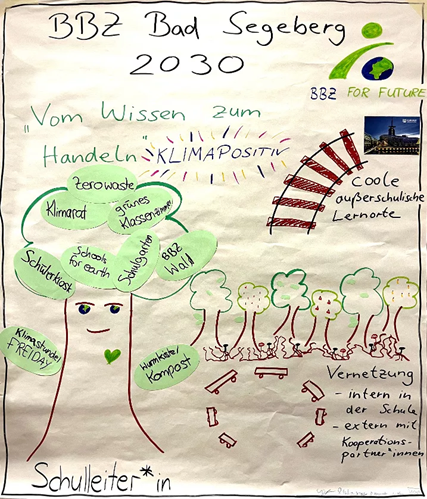 BBZ Bad Segeberg
2030
BBZ FOR FUTURE
"Vom Wissen zum
Handeln"
KLIMAPOSITIV
Zero waste
Klimarat
grünes
Klassenzimmer
Schülerkiost
Schools
for earth
Schulgarten
BBZ
Wald
coole
außerschulische
Lernorte
Klimastunde/
FREIDAY
Wurmkiste/
Kompost
Vernetzung
- intern in
der Schule
- extern mit
Kooperations-
partner*innen
Schulleiter*in